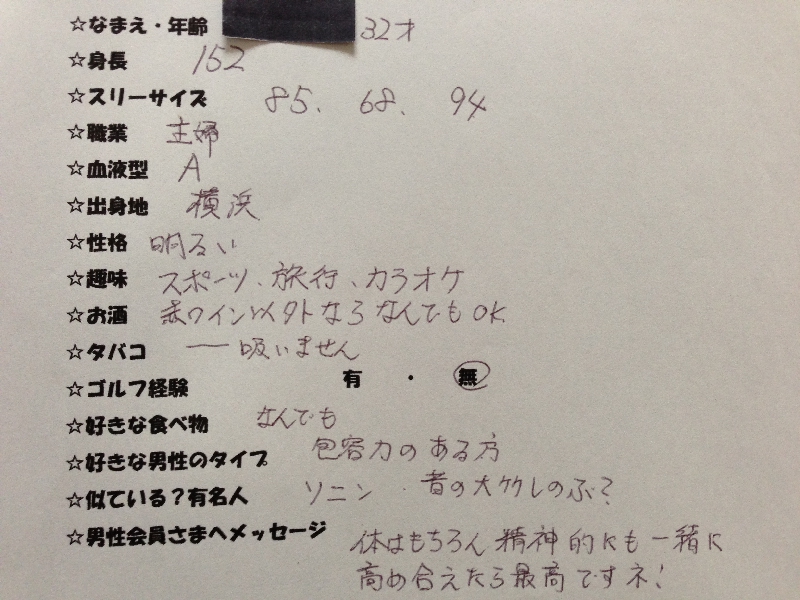 ☆なまえ・年齢 32才
☆身長 152
☆スリーサイズ 85、 68、 94
☆職業 主婦
☆血液型 A
☆出身地 横浜
☆性格 明るい
☆趣味 スポーツ、旅行、カラオケ
☆お酒 赤ワイン以外ならなんでもOK
☆タバコ ー 吸いません
☆ゴルフ経験 有 ・ 無
☆好きな食べ物 なんでも
☆好きな男性のタイプ 包容力のある方
☆似ている？有名人 ソニン ・昔の大竹しのぶ？
☆男性会員さまへメッセージ 体はもちろん精神的にも一緒に
高め合えたら最高ですネ！